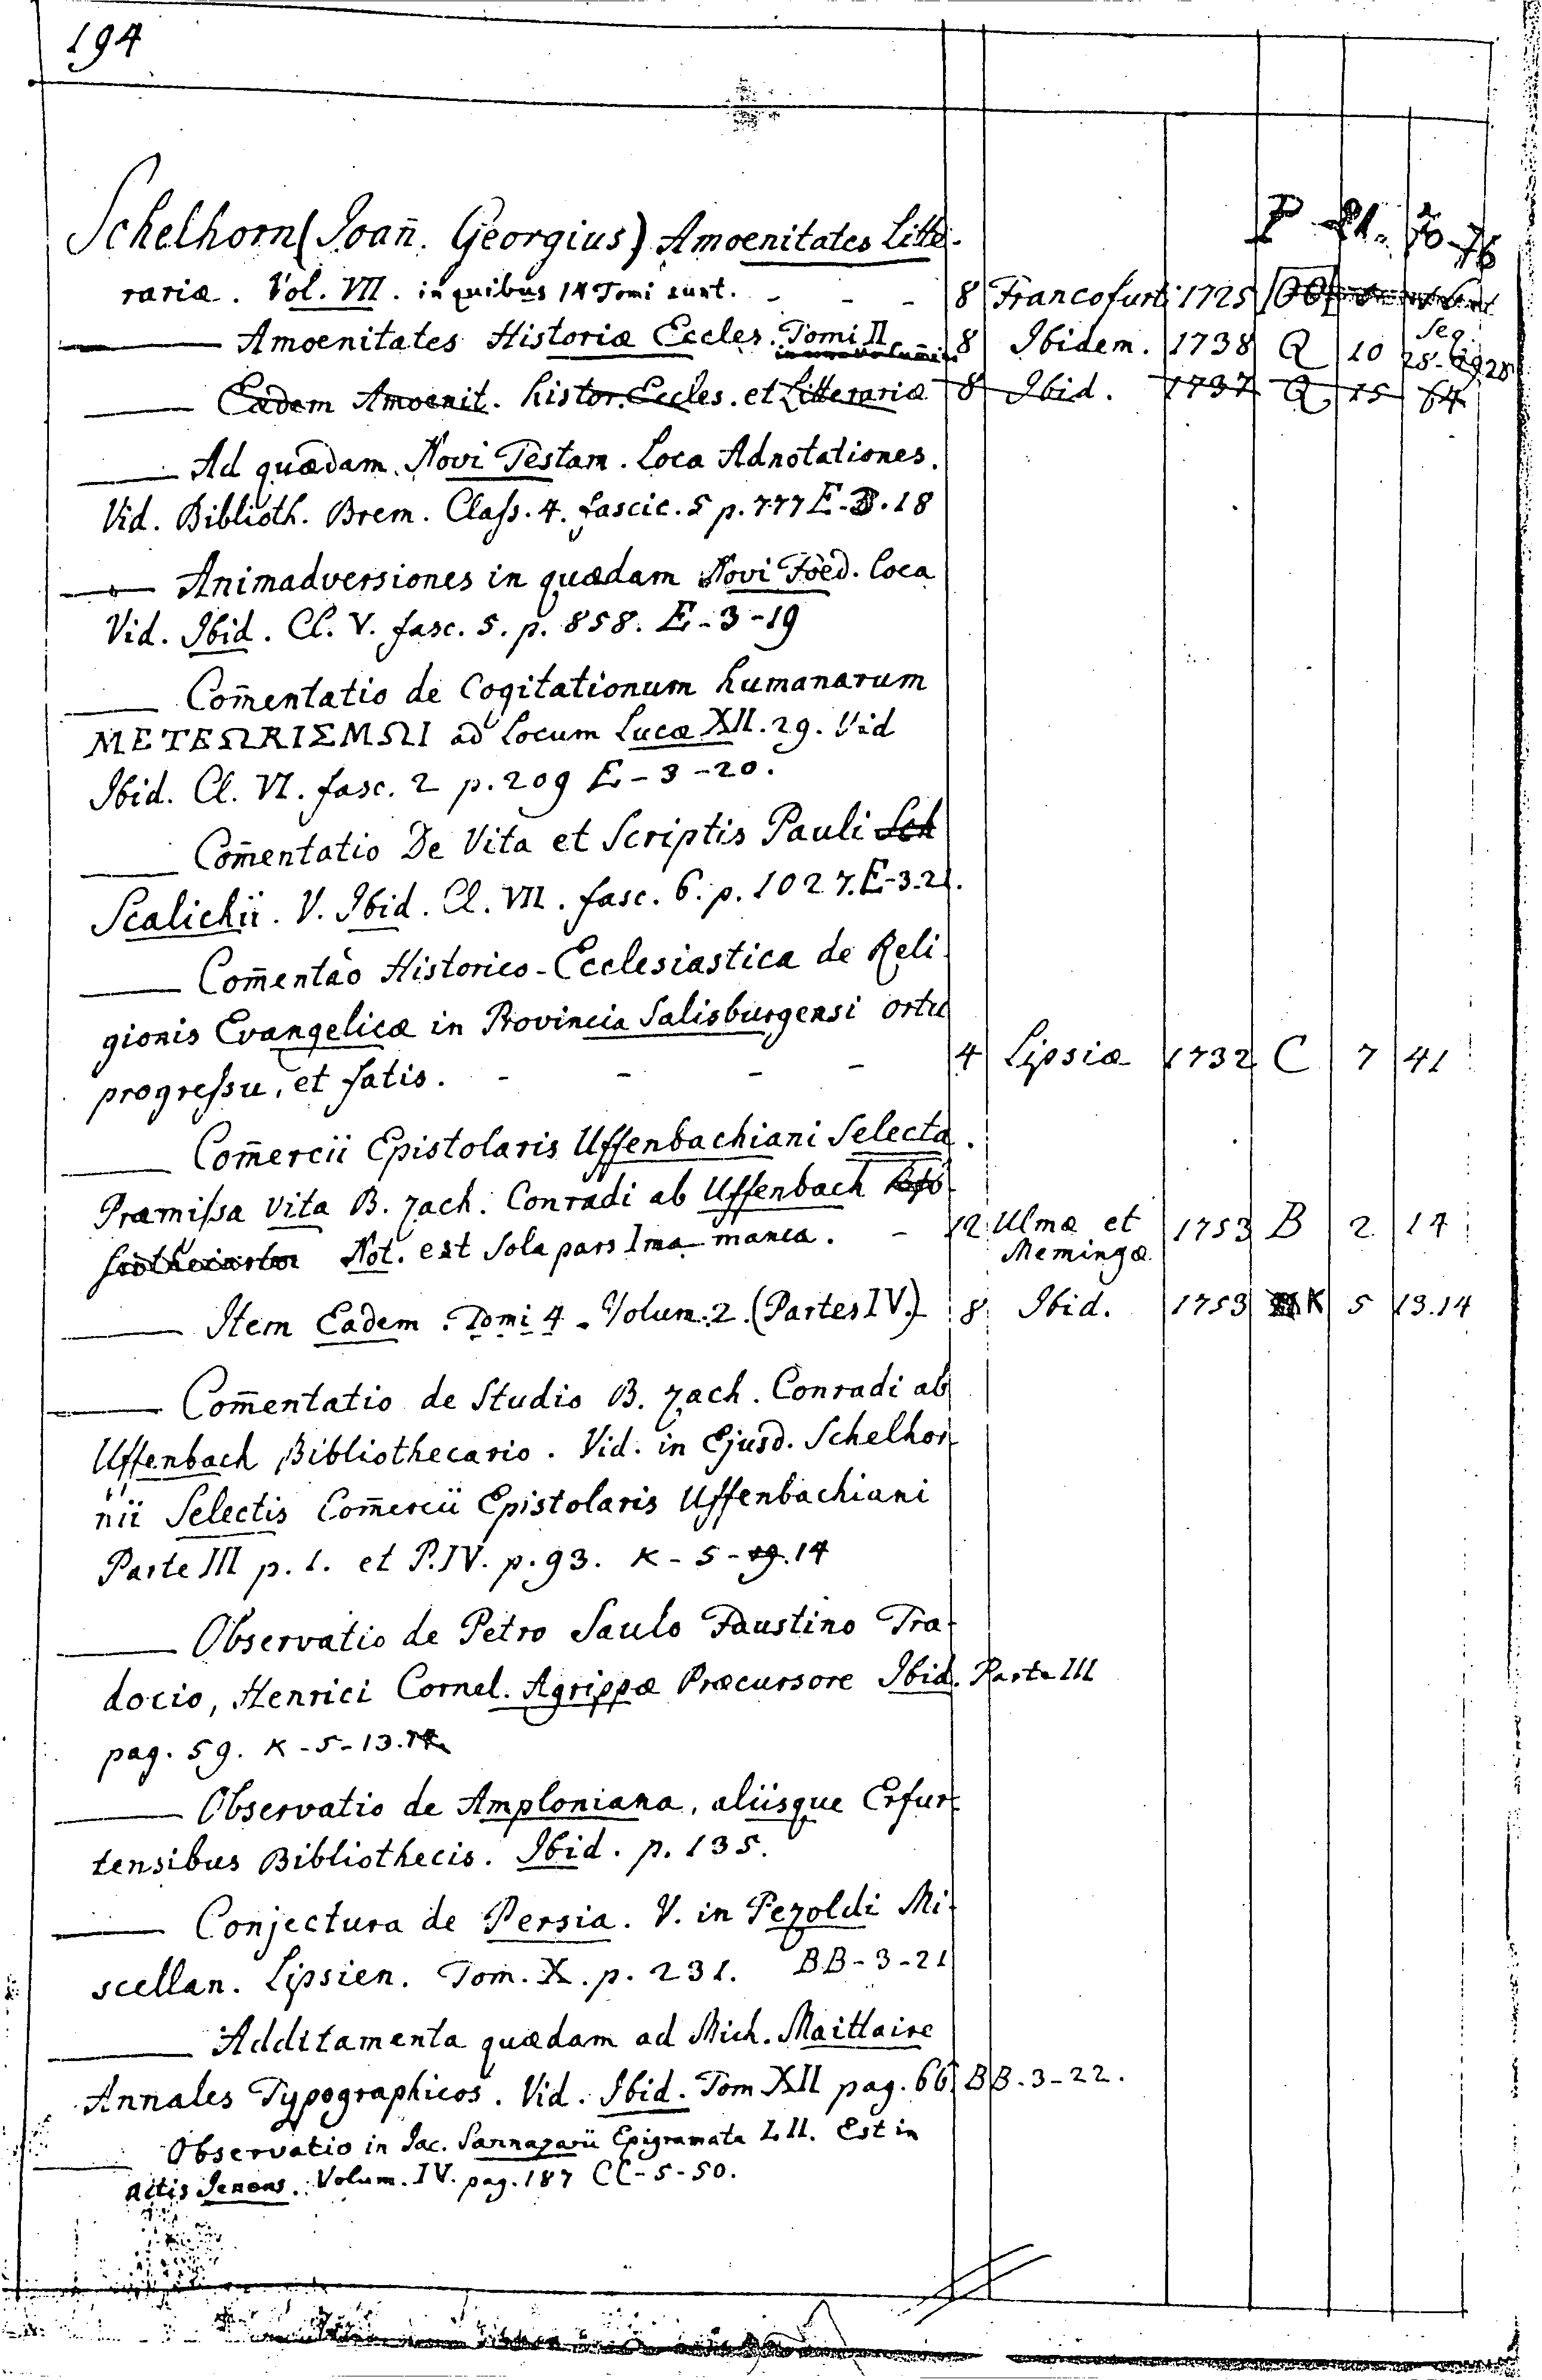 194
Schelhorn (Joan̄. Georgius) Amoenitates Litte-
rariæ. Vol. VII. in quibus 14 Tomi sunt. - - - 8 Francofurti 1725
Amoenitates Historiæ Eccles. Tomi II 8 Ibidem. 1738 Q 10
Eædem Amoenit. histor. Eccles. et Litterariæ 8 Ibid. 1737 Q 15 64
Ad quædam Novi Testam. Loca Adnotationes.
Vid. Biblioth. Brem. Class. 4. fascic. 5 p. 777 E-3.18
Animadversiones in quædam Novi Foed. Loca
Vid. Ibid. Cl. V. fasc. 5. p. 858. E-3-19
Com̄entatio de Cogitationum humanarum
ΜΕΤΕΩRΙΣΜΩΙ ad Locum Lucæ XII. 29. Vid
Ibid. Cl. VI. fasc. 2 p. 209 E-3-20.
Com̄entatio De Vita et Scriptis Pauli Sch
Scalichii. V. Ibid. Cl. VII. fasc. 6. p. 1027. E-3-21.
Com̄entào Historico-Ecclesiastica de Reli-
gionis Evangelicæ in Provincia Salisburgensi ortu
progressu, et fatis. - - - - 4 Lipsiæ 1732 C 7 41
Com̄ercii Epistolaris Uffenbachiani Selecta.
Præmissa vita B. Zach. Conradi ab Uffenbach
Not. est Sola pars Ima manca. - 12 Ulmæ et 1753 B 2 14
Memingæ
Item Eadem. Tomi 4. Volum. 2. (Partes IV.) 8 Ibid. 1753 K 5 13.14
Com̄entatio de Studio B. Zach. Conradi ab
Uffenbach Bibliothecario. Vid. in Ejusd. Schelhor-
nii Selectis Com̄ercii Epistolaris Uffenbachiani
Parte III p. 1. et P. IV. p. 93. K-5-14
Observatio de Petro Saulo Faustino Tra-
docio, Henrici Cornel. Agrippæ Præcursore Ibid. Parte III
pag. 59. K-5-13.14.
Observatio de Amploniana, aliisque Erfur-
tensibus Bibliothecis. Ibid. p. 135.
Conjectura de Persia. V. in Pezoldi Mi-
scellan. Lipsien. Tom. X. p. 231. BB-3-21
Additamenta quædam ad Mich. Maittaire
Annales Typographicos. Vid. Ibid. Tom XII pag. 66. BB.3-22.
Observatio in Jac. Sannazarii Epigramata L II. Est in
Actis Jenens. Volum. IV. pag. 187 CC-5-50.